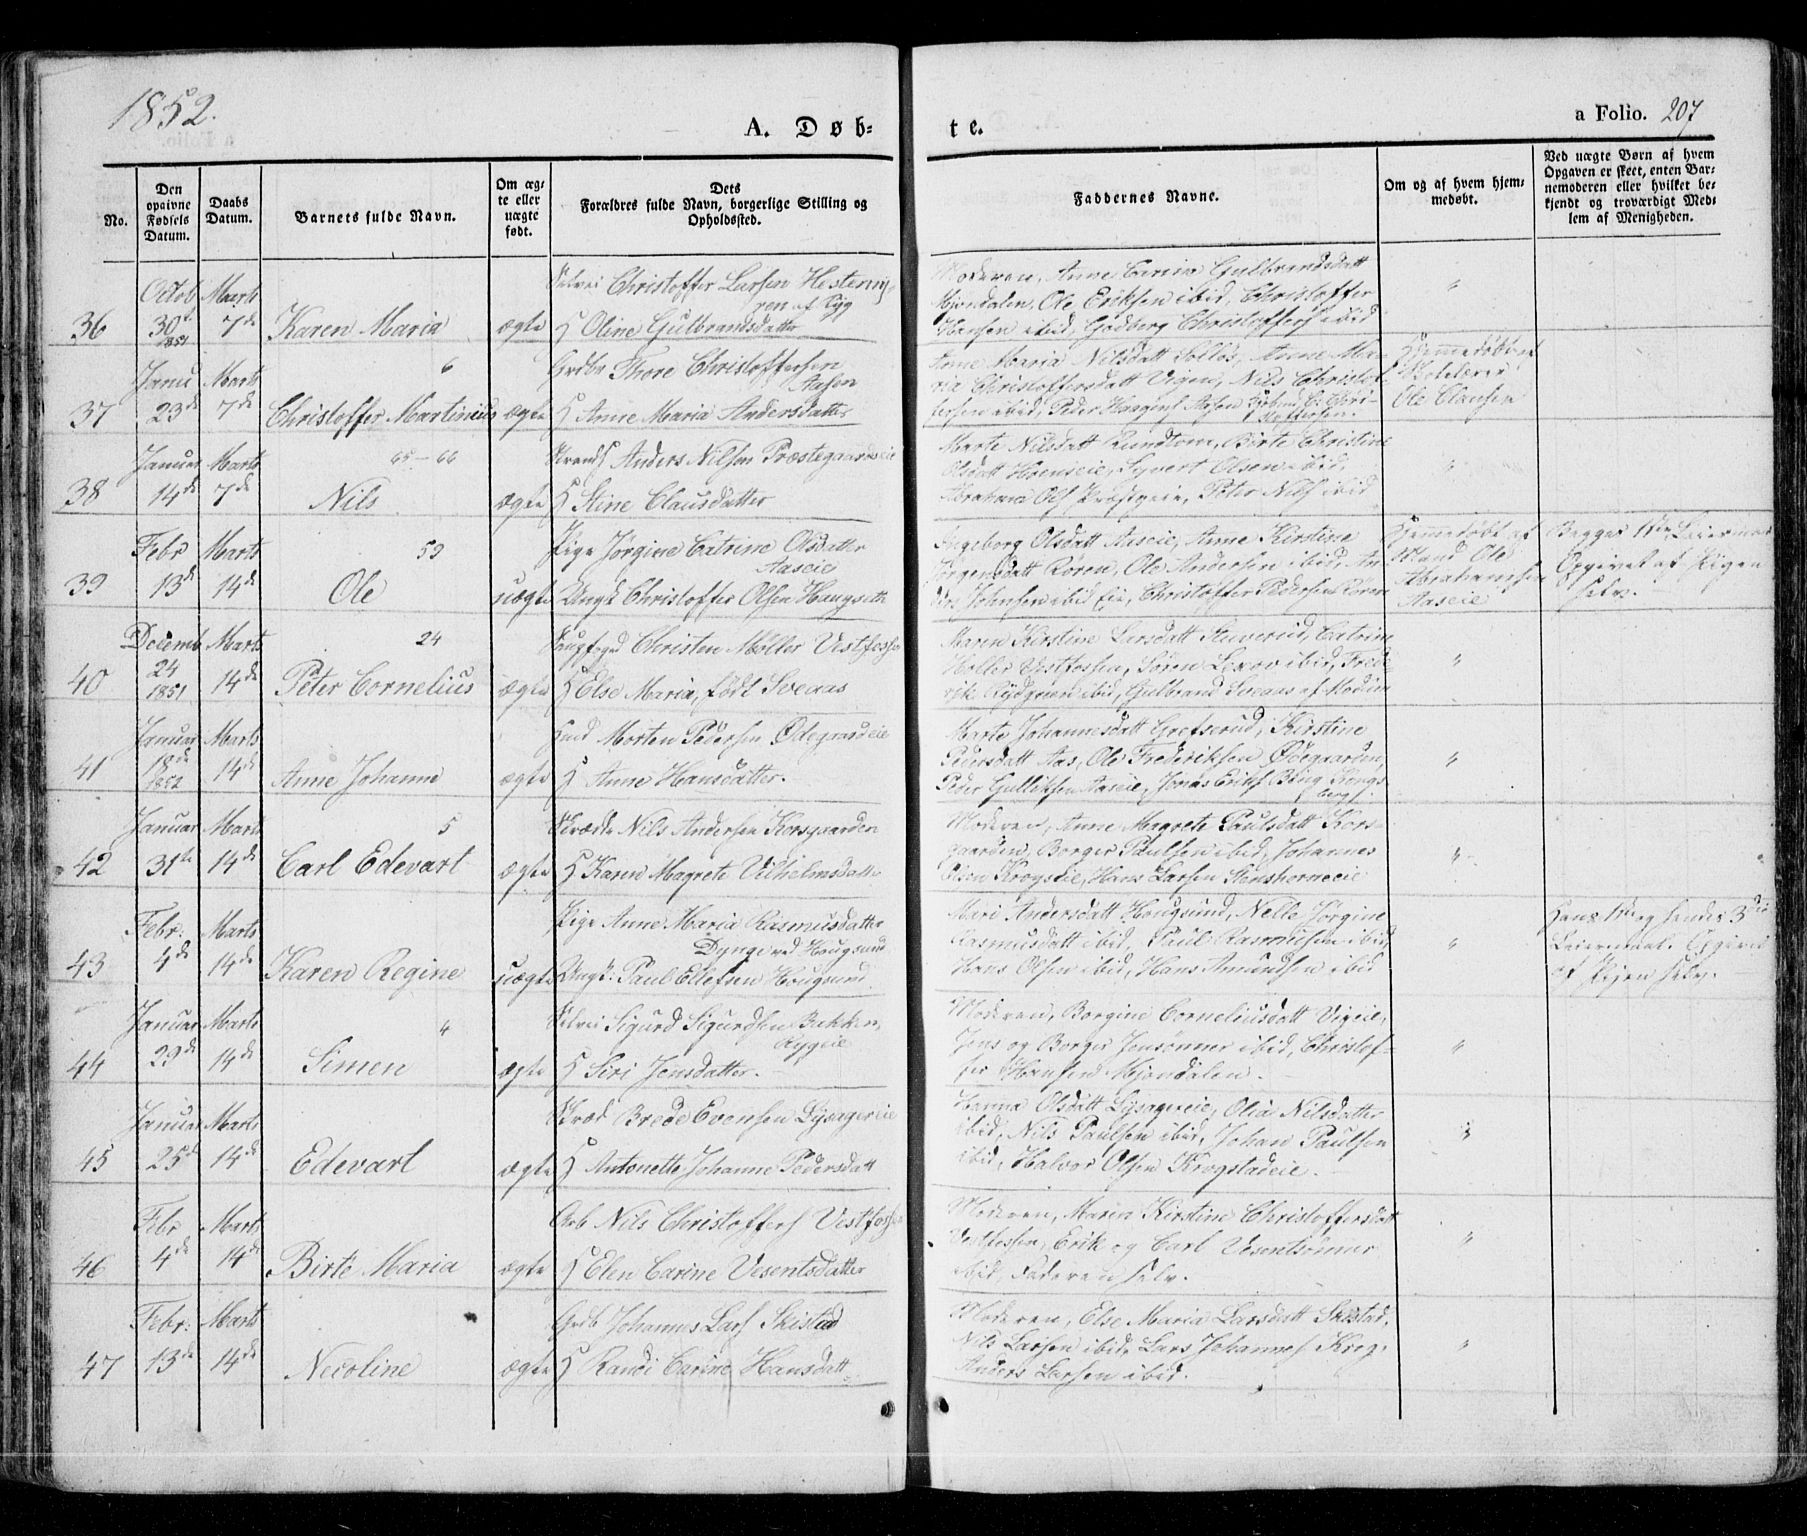 1852.
A. Døb-
te.
a Folio. 207
No.
Den
opgivne
Fødsels
Datum.
Daabs
Datum.
Barnets fulde Navn.
Om æg-
te eller
uægte
født.
Dets
Forældres fulde Navn, borgerlige Stilling og
Opholdssted.
Faddernes Navne.
Om og af hvem hjem-
medøbt.
Ved uægte Børn af hvem
Opgaven er skeet, enten Bar-
nemoderen eller hvilket be-
kjendt og troværdigt Med-
lem af Menigheden.
36
Octob
30te
1851
Marts
7de
Karen Maria
ægte
Selvei Christoffer Larsen Hestemy-
ren af Ryg
H Oline Gulbrandsdatter
Moderen, Anne Carin Gulbrandsdatt
Mjøndalen, Ole Eriksen ibid, Christoffer
Hansen ibid, Gudberg Christoffers ibid
"
37
Janu
23de
Marts
7de
6
Christoffer Martinius
ægte
Grdbr Thore Christoffersen
Aasen
H Anne Maria Andersdatter
Anne Maria Nilsdatt Solløs, Anne Ma-
ria Christoffersdatt Vigen, Nils Christof-
fersen ibid, Peder Haagens Aasen
Hjemmedøbt af
Skolelærer
Ole Clausen
38
Januar
14de
Marts
7de
65-66
Nils
ægte
Strands Anders Nilsen Præstegaardseie
H Stine Clausdatter
Marte Nilsdatt Rundtom, Birte Christine
Olsdatt Hoenseie, Syvert Olsen ibid,
Abraham Ols Præstgeie, Peter Nils ibid
"
39
Febr
13de
Marts
14de
59
Ole
uægte
Pige Jørgine Catrine Olsdatter
Aaseie
Ungk Christoffer Olsen Haugseth
Ingeborg Olsdatt Aaseie, Anne Kirstine
Jørgensdatt Røren, Ole Andersen ibid, An-
ders Johnsen ibid eie, Christoffer Pedersen Røren
Hjemmedøbt af
Mand Ole
Abrahamsen
Aaseie
Begges 1ste Leiermaal
Opgivet af Pigen
selv.
40
Decemb
24
1851
Marts
14de
24
Peter Cornelius
ægte
Christen Møller Vestfossen
H Else Maria, født Sveaas
Maren Kirstine Larsdatt Stuverud, Catrine
Møller Vestfossen, Søren Lexov ibid, Frede
rik Rydgren ibid, Gulbrand Sveaas af Modum
"
41
Januar
18de
1852
Marts
14de
Anne Johanne
ægte
Huusm Morten Pedersen Ødegaardeie
H Anne Hansdatter.
Marte Johannesdatt Grefserud, Kirstine
Pedersdatt Aas, Ole Frederiksen Ødegaarden,
Peder Gulliksen Aaseie, Jonas Eriks Kongs
berg.
"
42
Januar
31te
Marts
14de
5
Carl Edevart
ægte
Skrædr Nils Andersen Korsgaarden
H Karen Magrete Vilhelmsdatter
Moderen, Anne Magrete Paulsdatt Kors-
gaarden, Borger Paulsen ibid, Johannes
Olsen Krogseie, Hans Larsen Stenshorneeie
"
43
Febr:
4de
Marts
14de
Karen Regine
uægte
Pige Anne Maria Rasmusdatter
Dynge ved Hougsund
Ungk. Paul Ellefsen Hougsund
Mari Andersdatt Hougsund, Nelle Jørgine
Rasmusdatt ibid, Paul Rasmusen ibid
Hans Olsen ibid, Hans Amundsen ibid
"
Hans 1ste og hendes 3die
Leiermaal. Opgivet
af Pigen selv.
44
Januar
29de
Marts
14de
4
Simen
ægte
Selvei Sigurd Sigurdsen Bakken,
Rygeie
H Siri Jensdatter.
Moderen, Borgine Corneliusdatt Vigeie,
Jens og Borger Jensønner ibid, Christof-
fer Hansen Mjøndalen.
"
45
Januar
25de
Marts
14de
Edevart
ægte
Skræd Brede Evensen Lysagereie
H Antonette Johanne Pedersdatt
Hanna Olsdatt Lysagereie, Olia Nilsdatter
ibid, Nils Paulsen ibid, Johan Paulsen
ibid, Halvor Olsen Krogstadeie.
"
46
Febr
4de
Marts
14de
Birte Maria
ægte
Arb Nils Christoffers Vestfossen
H Elen Carine Vesentsdatter
Moderen, Maren Kirstine Christoffersdatt
Vestfossen, Erik og Carl Vesentsønner
ibid, Faderen selv.
"
47
Febr:
13de
Marts
14de
Necoline
ægte
Grdb Johannes Lars Skistad
H Randi Carine Hansdatt
Moderen, Else Maria Larsdatt Skistad,
Nils Larsen ibid, Lars Johannes Kreg,
Anders Larsen ibid.
"